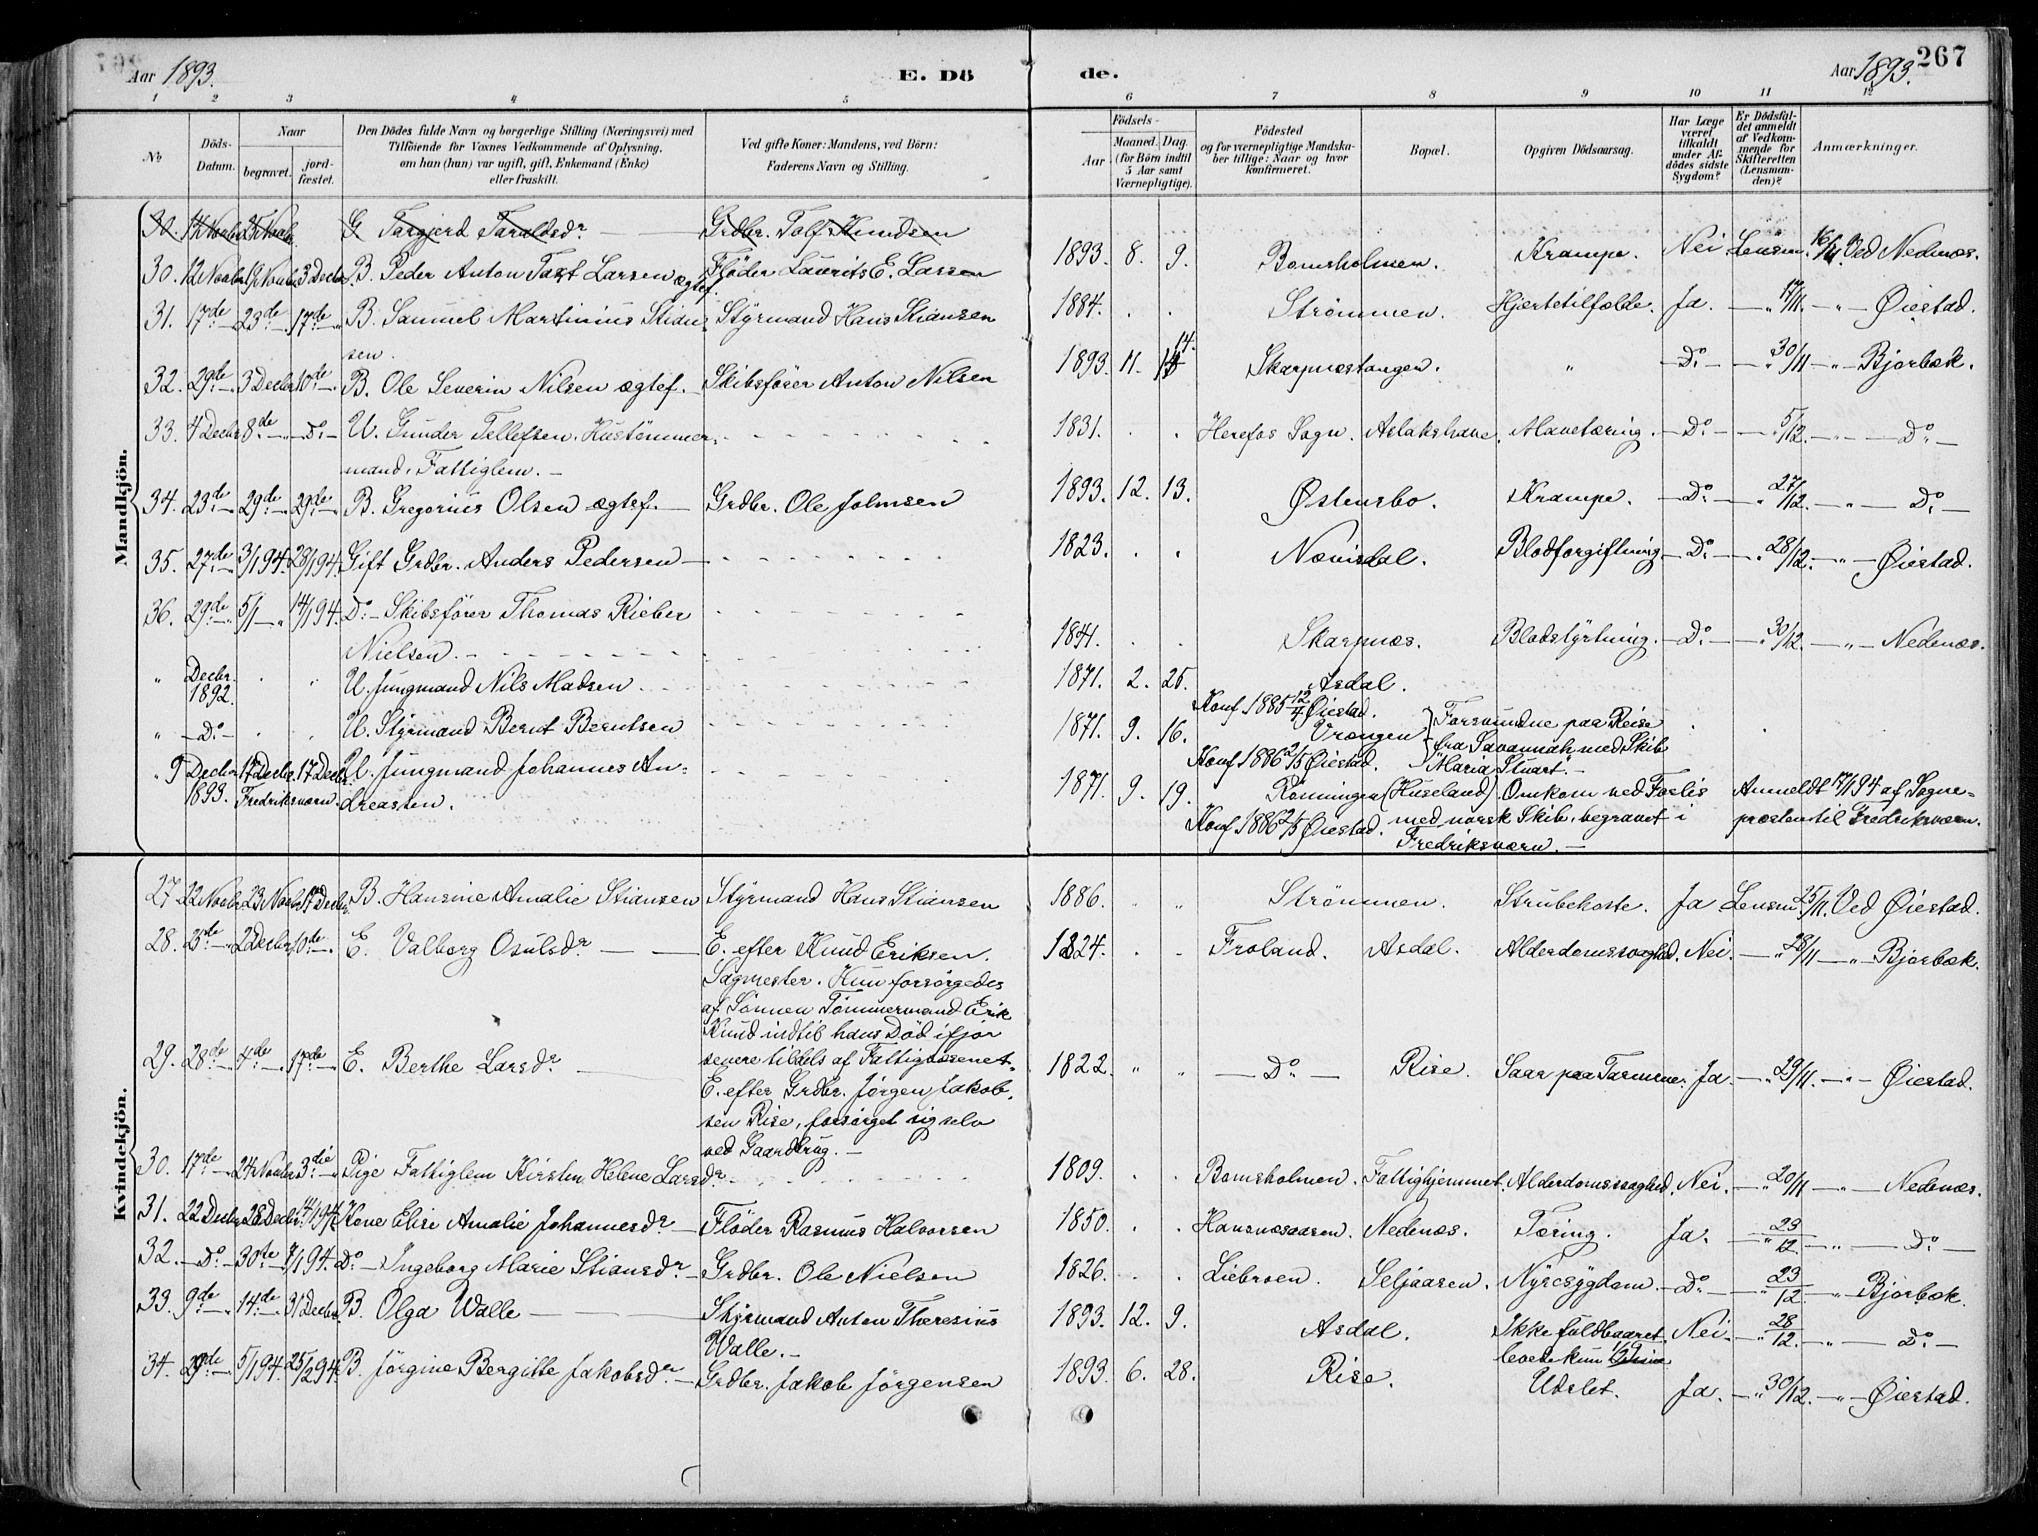 Aar 1893. E. Dö de. Aar 1893. 267
1 2 3 4 5 6 7 8 9 10 11 12
No Döds-Datum. Naar begravet. jordfæstet.
Den Dödes fulde Navn og borgerlige Stilling (Næringsvei) med
Tilföiende for Voxnes Vedkommende af Oplysning,
om han (hun) var ugift, gift, Enkemand (Enke)
eller fraskilt.
Ved gifte Koner: Mandens, ved Börn:
Faderens Navn og Stilling.
Födsels-
Aar Maaned. Dag.
(for Börn indtil
5 Aar samt
Værnepligtige).
Födested
og for værnepligtige Mandska-
ber tillige: Naar og hvor
konfirmeret.
Bopæl.
Opgiven Dödsaarsag.
Har Læge
været
tilkaldt
under Af-
dödes sidste
Sygdom?
Er Dödsfal-
det anmeldt
af Vedkom-
mende for
Skifteretten
(Lensman-
den)?
Anmærkninger.
Mandkjön.
30. 14 Novbr. 25 Novbr. G Targjerd Taraldsdr Grdbr. Tolf Knudsen
30. 12 Novbr. 19 Novbr. 3 Decbr. B. Peder Anton Larsen ægtef. Fløder Laurits E. Larsen 1893. 8. 9. Bomsholmen. Krampe. Nei Lensm. 16/11. Ved Nedenæs.
31. 17de 23de 17de B. Samuel Martinius Stian- Styrmand Hans Stiansen 1884. Strømmen. Hjertetilfælde. Ja. 17/11 Øiestad.
sen.
32. 29de 3 Decbr. 10de B. Ole Severin Nilsen ægtef. Skibsfører Anton Nilsen 1893. 11. 14. Skarpnæstangen. " Do 30/11 Bjorbæk.
33. 4 Decbr. 8de Do U. Gunder Tellefsen. Hustømmer- 1831. Herefos Sogn. Aslakshave. Mavetæring. Do 5/12. Do
mand. Fattiglem.
34. 23de 29de 29de B. Gregorius Olsen ægtef. Grdbr. Ole Johnsen 1893. 12. 13. Østensbo. Krampe. Do 27/12. Do
35. 27de 3/1 94. 28/1 94. Gift Grdbr. Anders Pedersen 1823. Nævisdal. Blodforgiftning Do 28/12. Øiestad.
36. 29de 5/1 14/1 94. Do Skibsfører Thomas Rieber 1841. Skarpnæs. Blodstyrtning. Do 30/12. Nedenæs.
Nielsen.
" Decbr. 1892. U. Jungmand Nils Madsen. 1871. 2. 25. Asdal.
Konf. 1885 12/4 Øiestad.
" Do U. Styrmand Bernt Berntsen 1871. 9. 16. Vrengen Forsvundne paa Reise
Konf. 1886 2/5 Øiestad. fra Savannah med Skib
"Maria Stuart".
" 9 Decbr. 1893. 17 Decbr. Fredriksværn. 17 Decbr. U. Jungmand Johannes An- 1871. 9. 19. Rønningen (Huseland). Omkom ved Forlis Anmeldt 17/1 94 af Sogne-
dreassen. Konf. 1886 2/5 Øiestad. med norsk Skib, begravet i præsten til Fredriksværn.
Fredriksværn.
Kvindekjön.
27 22 Novbr. 23 Novbr. 17 Decbr. B. Hansine Amalie Stiansen Styrmand Hans Stiansen 1886. " " Strømmen. Strubehoste. Ja Lensm. 25/11. Ved Øiestad.
28. 25de 2 Decbr. 10de E. Valborg Osulsdr E. efter Knud Eriksen. 1824. Froland. Asdal. Alderdomssvaghed. Nei. 28/11 Bjorbæk.
Sagmester. Hun forsørgedes
af Sønnen Tømmermand Erik
Knud indtil hans Død ifjor
senere tildels af Fattigvæsenet.
29. 28de 4de 17de E. Berthe Larsdr 1822. " " Do Rise. Saar paa Tarmene. Ja 29/11. Øiestad.
E. efter Grdbr. Jørgen Jakob-
sen Rise, forsørget sig selv
ved Gaardbrug.
30. 17de 24 Novbr. 3die Pige Fattiglem Kirsten Helene Larsdr. 1809. Bomsholmen. Fattighjemmet. Alderdomssvaghed. Nei. 20/11 Nedenæs.
31. 22 Decbr. 28 Decbr. 14/1 94. Kone Elise Amalie Johannesdr Fløder Rasmus Halvorsen 1850. Hansnæsaasen. Nedenæs. Tæring. Ja. 23/12. Do
32. Do 30te 7/1 94. Do Ingeborg Marie Stiansdr Grdbr. Ole Nielsen 1826. Liebroen. Seljaasen. Nyresygdom. Do 23/12. Bjorbæk.
33. 9de 14de 31 Decbr. B. Olga Walle Styrmand Anton Theresius 1893. 12. 9. Asdal. Ikke fuldbaaret Nei 28/12. Do
Walle. levede kun
34. 29de 5/1 94. 25/2 94. B. Jörgine Bergitte Jakobsdr Grdbr. Jakob Jörgensen 1893 6. 28. Rise. Udslet. Ja. 30/12. Øiestad.